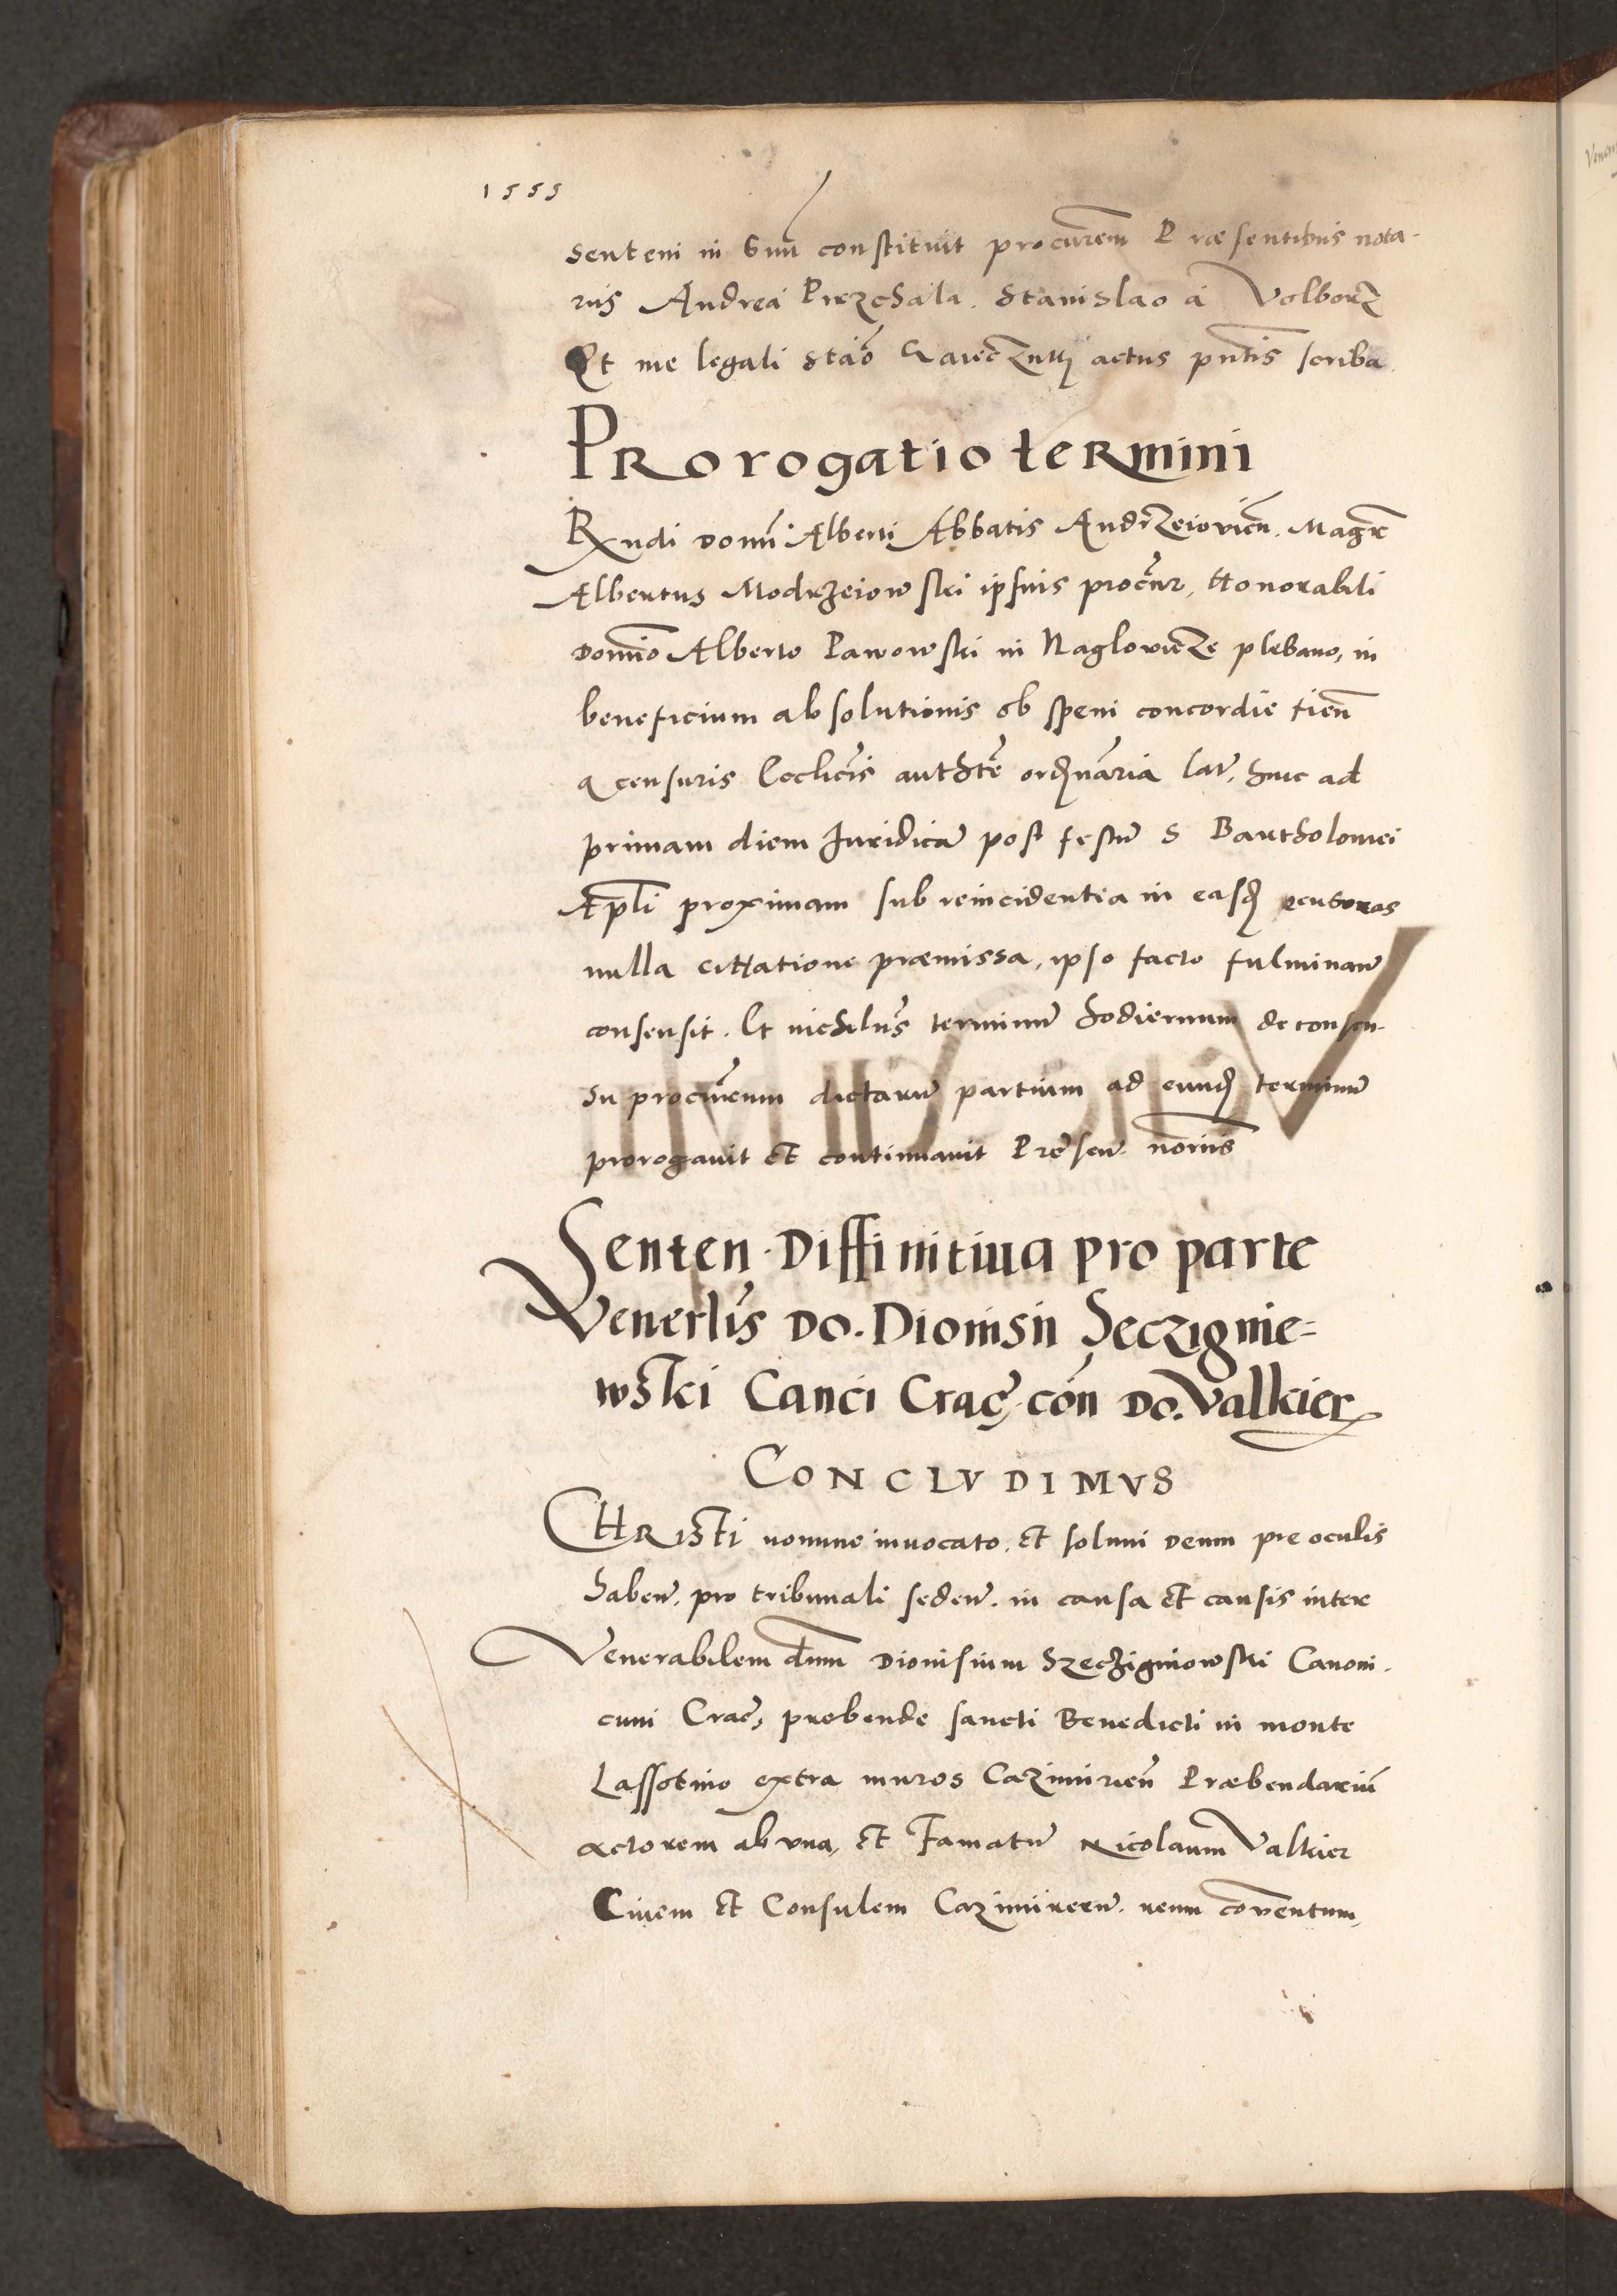 1555
sentem in suū constituit procurēem Præsentibus nota-
riis Andrea Pirzchala. Stanislao a Volborz
Et me legali Stāo actus pn̄tis scriba.
PRorogatio teRmini
Rxndi domī Alberti Abbatis Andrzeiovien̄. Magr̄
Albertus Modrzeiowski ipsius procūr, Honorabili
domīo Alberto Pawowski in Naglovicze plebano, in
beneficium absolutionis ob spem concordie fien̄
a censuris Ecclīcis authtē ordīnāria lat̄, huc ad
primam diem Iuridicā post festū S Bartholomei
Apl̄i proximam sub reincidentia in easd̄ censuras
nulla cittatione præmissa, ipso facto fulminan̄
consensit. Et nichilus̄ terminū hodiernum de consen-
su procūreum dictarū partium ad eund̄ terminū
prorogavit et continuavit Presen. noriis
Senten. Diffinitiua pro parte
Venerl̄is Do. Dionisii Seczignie=
wski Canci Crac̄. con̄ Do. Valkier
CONCLVDIMVS
CHRisti nomine inuocato, et solum deum pre oculis
haben̄. pro tribunali seden̄. in causa et causis inter
Venerabilem dn̄m Dionisium Szeczigniowski Canoni-
cum Crac̄, prebende sancti Benedicti in monte
Lassotino extra muros Cazimirien̄ Præbendariū
actorem ab vna, et Famatū Nicolaum Valkier
Ciuem et Consulem Cazimiren̄. reum cōventum,